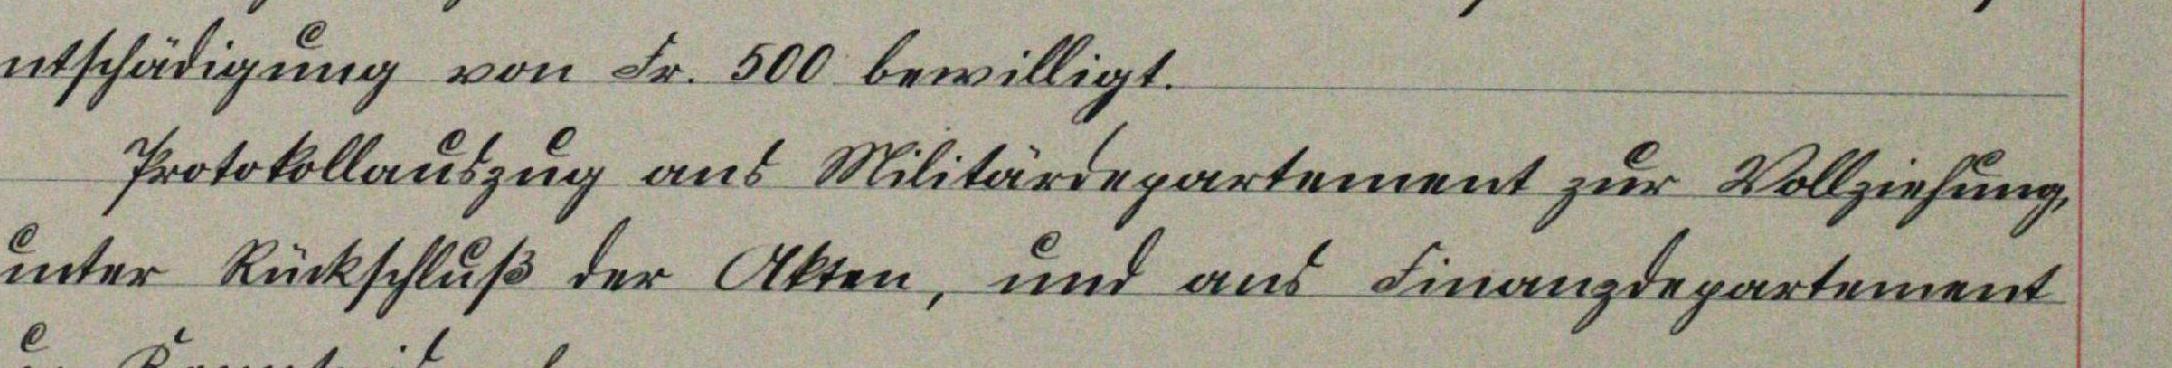 ntschädigung von Fr. 500 bewilligt.
Protokollauszug ans Militärdepartement zur Vollziehung,
unter Rückschluß der Akten, und ans Finanzdepartement